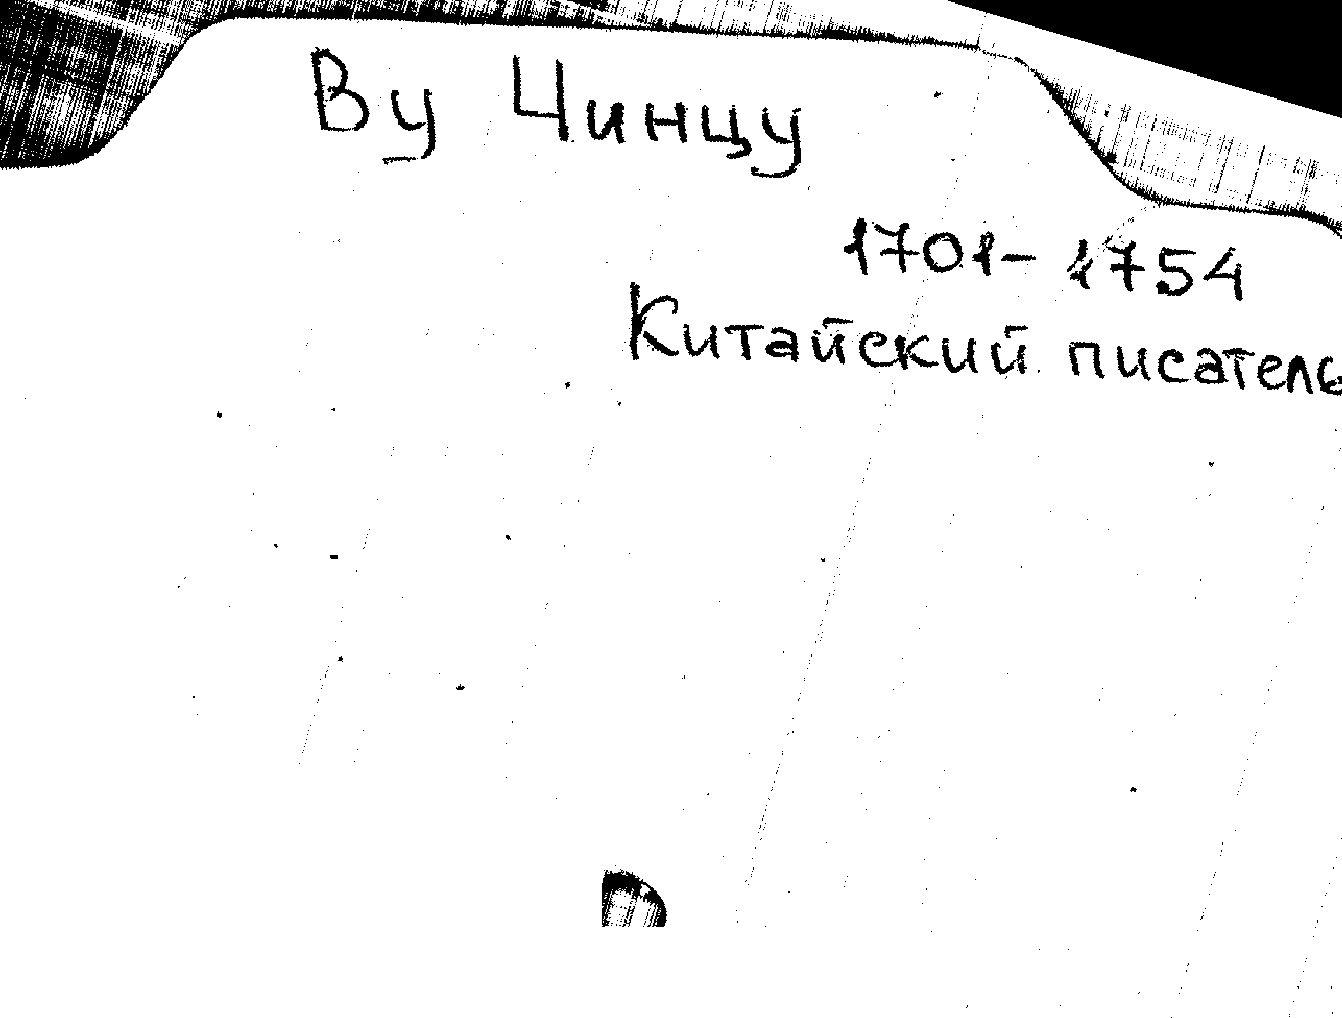 Ву Чинцу
1701- 1754
Китайский писатель